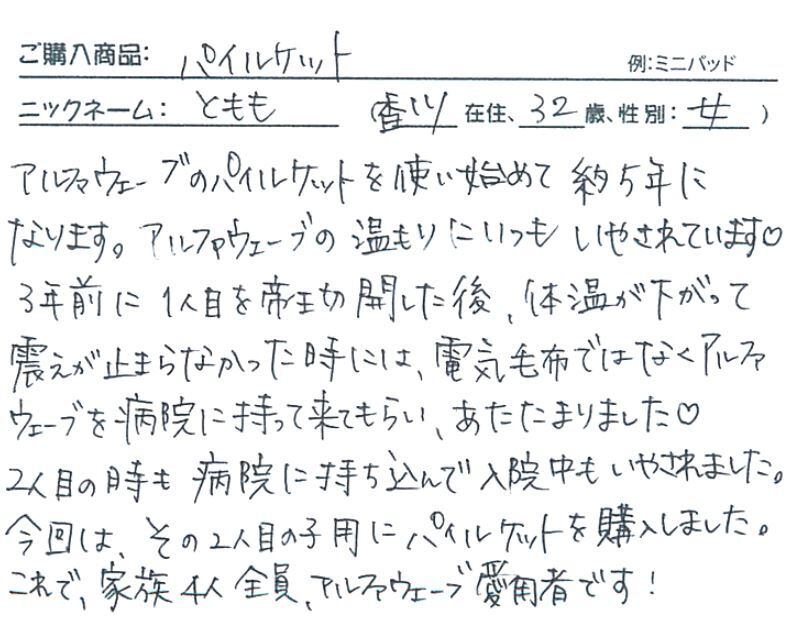 ご購入商品: パイルケット 例:ミニパッド
ニックネーム: ともも (香川 在住、32歳、性別: 女 )
アルファウェーブのパイルケットを使い始めて約5年に
なります。アルファウェーブの温もりにいつもいやされています♡
3年前に1人目を帝王切開した後、体温が下がって
震えが止まらなかった時には、電気毛布ではなくアルファ
ウェーブを病院に持って来てもらい、あたたまりました♡
2人目の時も病院に持ち込んで入院中もいやされました。
今回は、その2人目の子用にパイルケットを購入しました。
これで、家族4人全員、アルファウェーブ愛用者です!